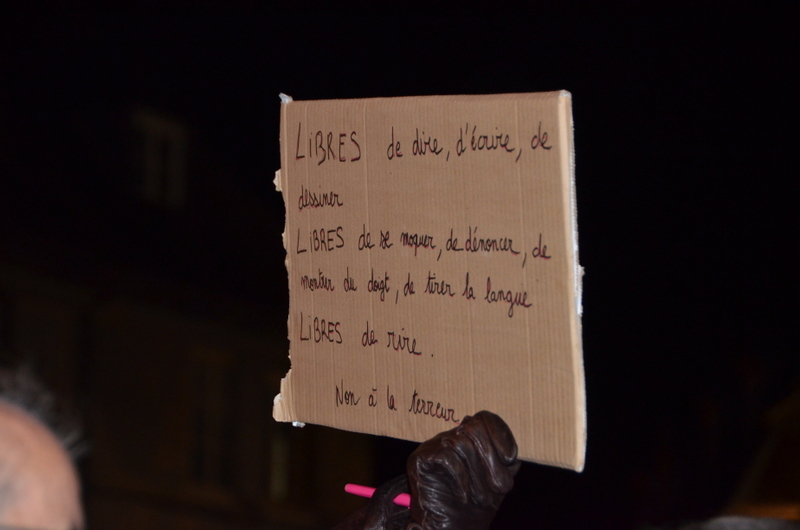 LIBRES de dire, d'écrire, de
dessiner
LIBRES de se moquer, de dénoncer, de
montrer du doigt, de tirer la langue
LIBRES de rire.
Non à la terreur